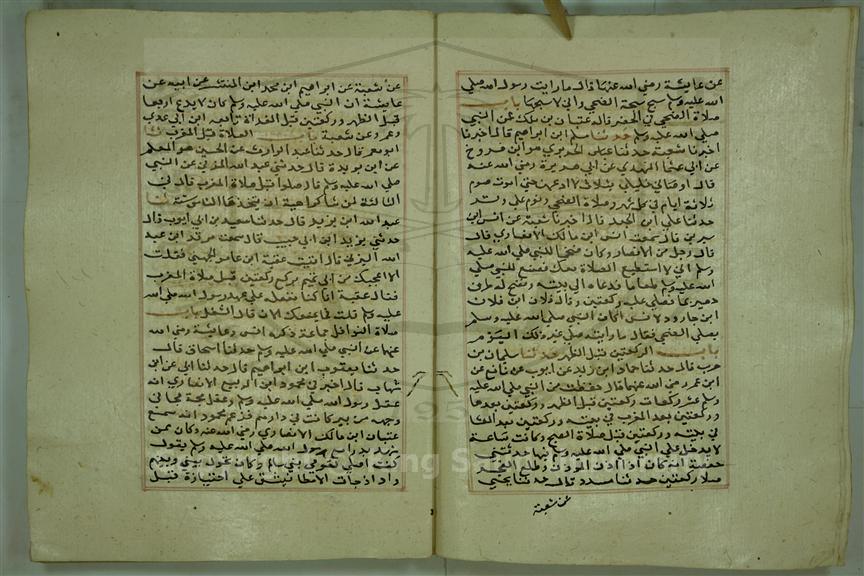 عن عايشة رضي الله عنها قالت ما رايت رسول الله صلي
الله عليه وسلم سبح سبحة الضحي واني لاسبحها باب
صلاة الضحي في الحضر قاله عتبان بن ملك عن النبي
صلي الله عليه وسلم حدثنا مسلم ابن ابراهيم قال اخبرنا
اخبرنا شعبة حدثنا عباس الجريري هو ابن فروخ
عن ابي عثمان النهدي عن ابي هريرة رضي الله عنه
قال اوصاني خليلي بثلاث لا ادعهن حتي اموت صوم
ثلاثة ايام من كل شهر وصلاة الضحي ونوم علي وتر
حدثنا علي ابن الجعد قال اخبرنا شعبة عن انس ابن
سيرين قال سمعت انس ابن مالك الانصاري قال
قال رجل من الانصار وكان ضخما للنبي صلي الله عليه
وسلم اني لا استطيع الصلاة معك فصنع للنبي صلي
الله عليه وسلم طعاما فدعاه الي بيته ونضح له طرف
حصير بماء فصلي عليه ركعتين وقال فلان ابن فلان
ابن جارود لانس اكان النبي صلي الله عليه وسلم
يصلي الضحي فقال ما رايته صلي غير ذلك اليوم
باب الركعتين قبل الظهر حدثنا سلمان بن
حرب قال حدثنا حماد ابن زيد عن ايوب عن نافع عن
ابن عمر رضي الله عنهما قال حفظت من النبي صلي الله عليه
وسلم عشر ركعات ركعتين قبل الظهر وركعتين بعدها
وركعتين بعد المغرب في بيته وركعتين بعد العشا
في بيته وركعتين قبل صلاة الصبح وكانت ساعة
لا يدخل علي النبي صلي الله عليه وسلم فيها حدثتني
حفصة انه كان اذا اذن الموذن وطلع الفجر
صلا ركعتين حدثنا مسدد قال حدثنا يحيي
عن شعبة
عن شعبة عن ابراهيم ابن محمد ابن المنتشر عن ابيه عن
عايشة ان النبي صلي الله عليه وسلم كان لا يدع اربعا
قبل الظهر وركعتين قبل الغداة تابعه ابن ابي عدي
وعمرو عن شعبة باب الصلاة قبل المغرب
ابو معمر قال حدثنا عبد الوارث عن الحسين هو المعلم
عن ابن بريدة قال حدثني عبد الله المزني عن النبي
صلي الله عليه وسلم قال صلوا قبل صلاة المغرب قال في
الثالثة لمن شا كراهية ان يتخذها الناس سنة
عبد الله ابن يزيد قال حدثنا سعيد بن ابي ايوب قال
حدثني يزيد ابن ابي حبيب قال سمعت مرثد ابن عبد
الله اليزني قال اتيت عقبة ابن عامر الجهني فقلت
الا اعجبك من ابي تميم يركع ركعتين قبل صلاة المغرب
فقال عقبة انا كنا نفعله علي عهد رسول الله صلي الله
عليه وسلم قلت فما يمنعك الان قال الشغل باب
صلاة النوافل جماعة ذكره انس وعايشة رضي الله
عنهما عن النبي صلي الله عليه وسلم حدثنا اسحاق قال
حدثنا يعقوب ابن ابراهيم قال حدثنا ابي عن ابن
شهاب قال اخبرني محمود ابن الربيع الانصاري انه
عقل رسول الله صلي الله عليه وسلم وعقل مجة مجها في
وجهه من بير كانت في دارهم فزعم محمود انه سمع
عتبان ابن مالك الانصاري رضي الله عنه وكان ممن
شهد بدرا مع رسول الله صلي الله عليه وسلم يقول
كنت اصلي لقومي بني سالم وكان يحول بيني وبينهم
واد اذا جات الامطار فيشق علي اجتيازه قبل